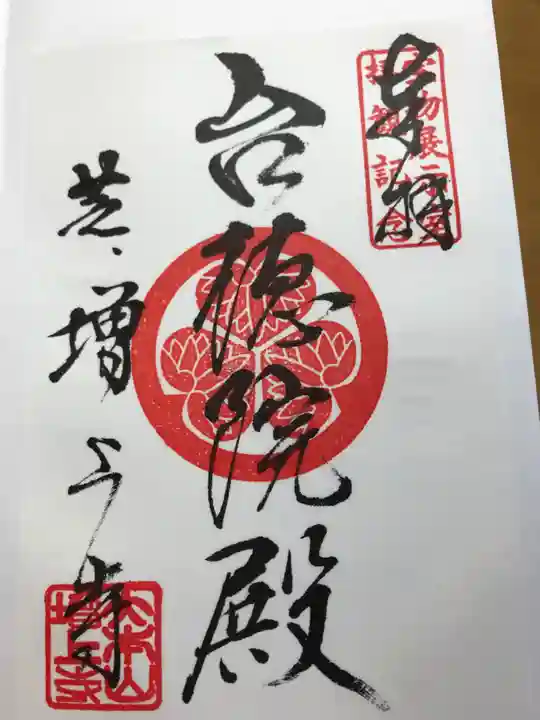 奉拝
宝物展示室
拝観記念
台徳院殿
芝 増上寺
三縁山
増上寺